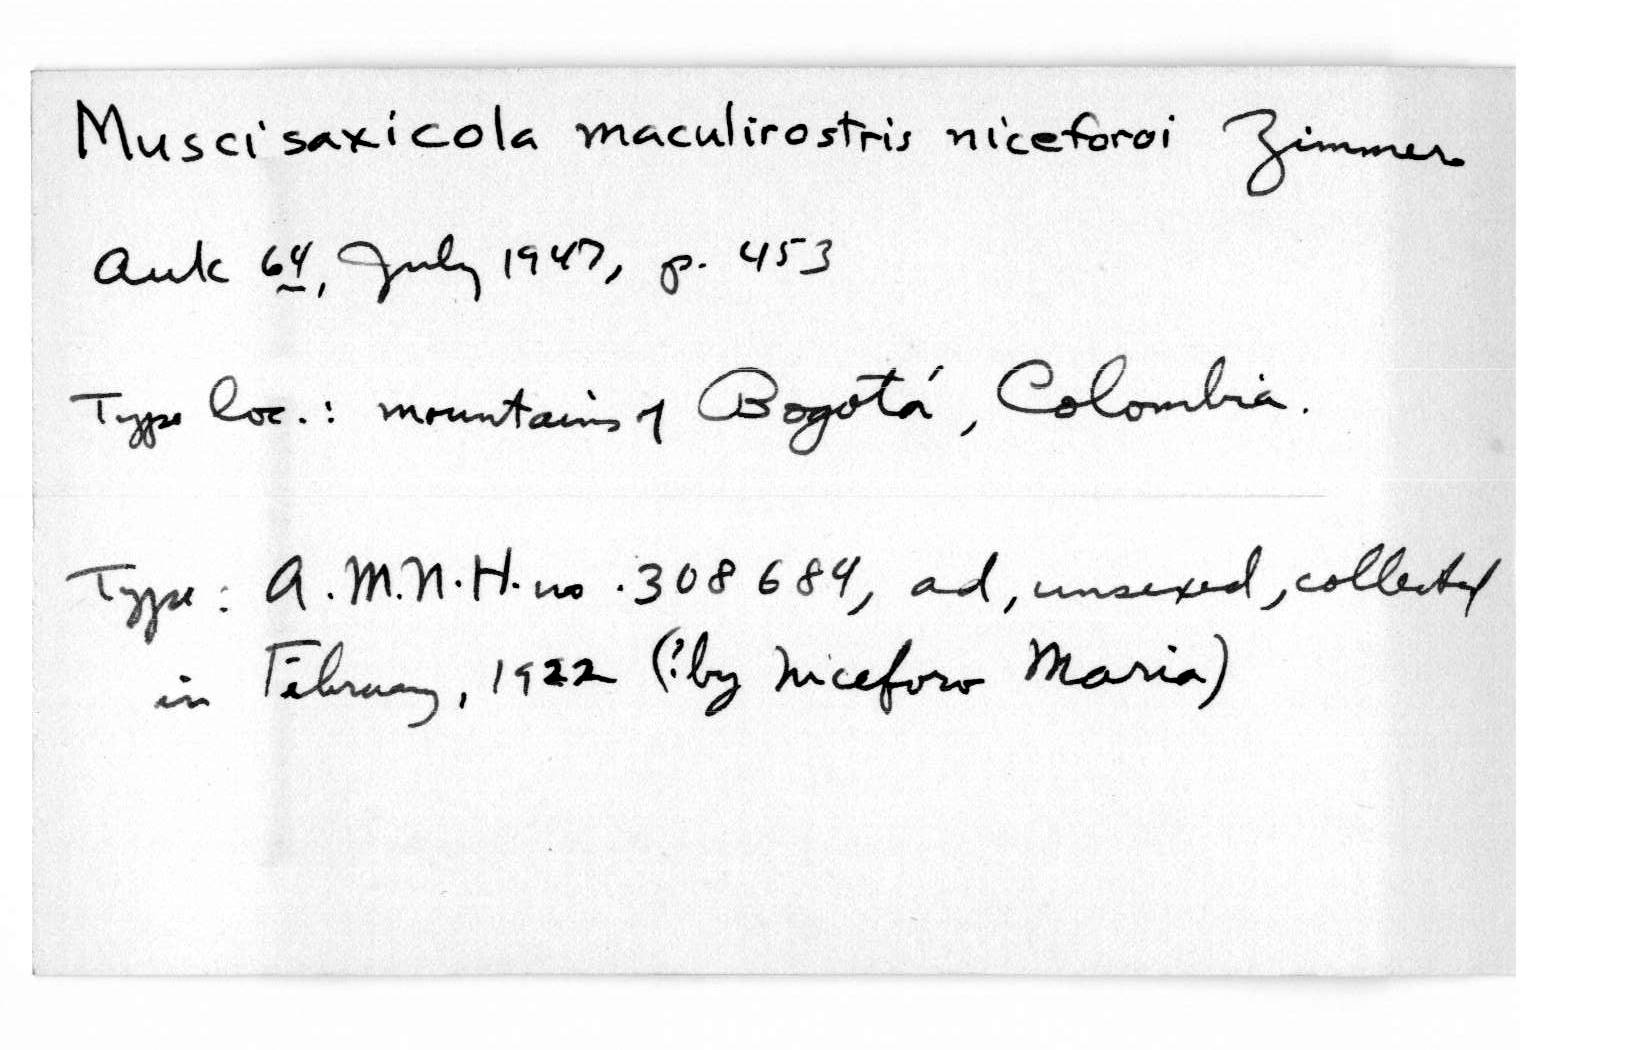 Muscisaxicola maculirostris niceforoi Zimmer
Auk 64, July 1947, p. 453
Type loc.: mountains of Bogotá, Colombia.
Type: A.M.N.H. no. 308684, ad, unsexed, collected
in February, 1922 (?by Niceforo Maria)